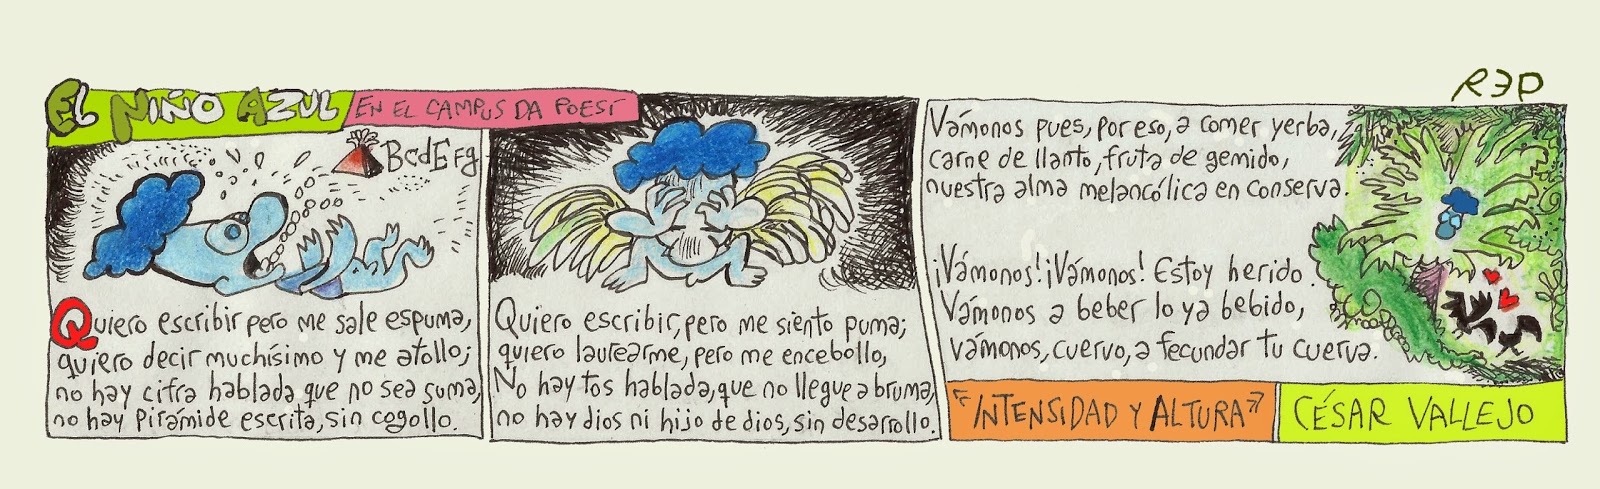 EL NIÑO AZUL
EN EL CAMPUS DA POESÍ
REP
BCdEFg
Quiero escribir pero me sale espuma,
quiero decir muchísimo y me atollo;
no hay cifra hablada que no sea suma,
no hay Pirámide escrita, sin cogollo.
Quiero escribir, pero me siento puma;
quiero laurearme, pero me encebollo,
No hay tos hablada, que no llegue a bruma,
no hay dios ni hijo de dios, sin desarrollo.
Vámonos pues, por eso, a comer yerba,
carne de llanto, fruta de gemido,
nuestra alma melancólica en conserva.
¡Vámonos! ¡Vámonos! Estoy herido.
Vámonos a beber lo ya bebido,
vámonos, cuervo, a fecundar tu cuerva.
"INTENSIDAD Y ALTURA"
CÉSAR VALLEJO